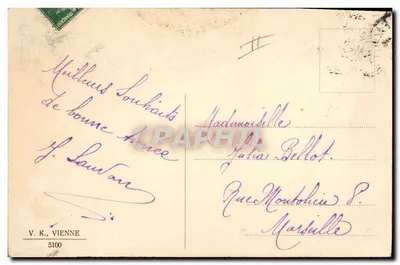 Meilleurs Souhaits
de bonne Année
Mademoiselle
Julia Bellot.
Rue Montolieu 8.
Marseille
V. K., VIENNE
5100